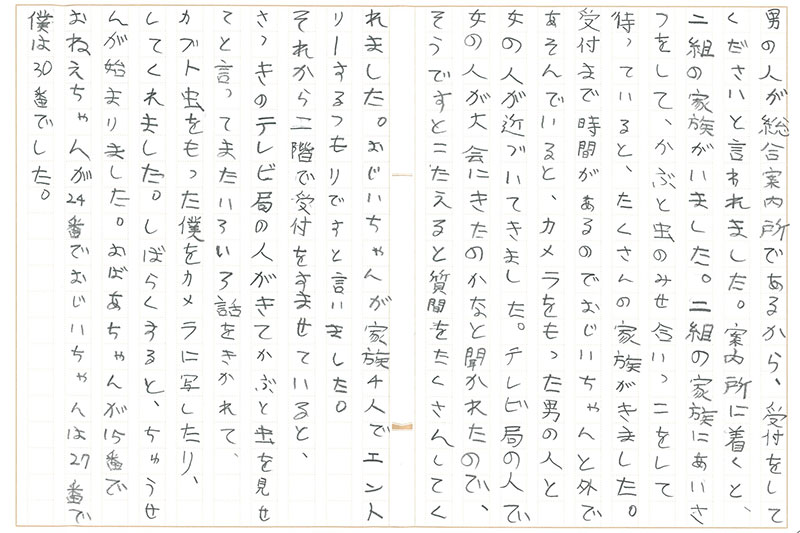 男の人が総合案内所であるから、受付をして
くださいと言われました。案内所に着くと、
二組の家族がいました。二組の家族にあいさ
つをして、かぶと虫のみせ合いっこをして
待っていると、たくさんの家族がきました。
受付まで時間があるのでおじいちゃんと外で
あそんでいると、カメラをもった男の人と
女の人が近づいてきました。テレビ局の人で
女の人が大会にきたのかなと聞かれたので、
そうですとこたえると質問をたくさんしてく
れました。おじいちゃんが家族4人でエント
リーするつもりですと言いました。
それから二階で受付をすませていると、
さっきのテレビ局の人がきてかぶと虫を見せ
てと言ってまたいろいろ話をきかれて、
カブト虫をもった僕をカメラに写したり、
してくれました。しばらくすると、ちゅうせ
んが始まりました。おばあちゃんが15番で
おねえちゃんが24番でおじいちゃんは27番で
僕は30番でした。